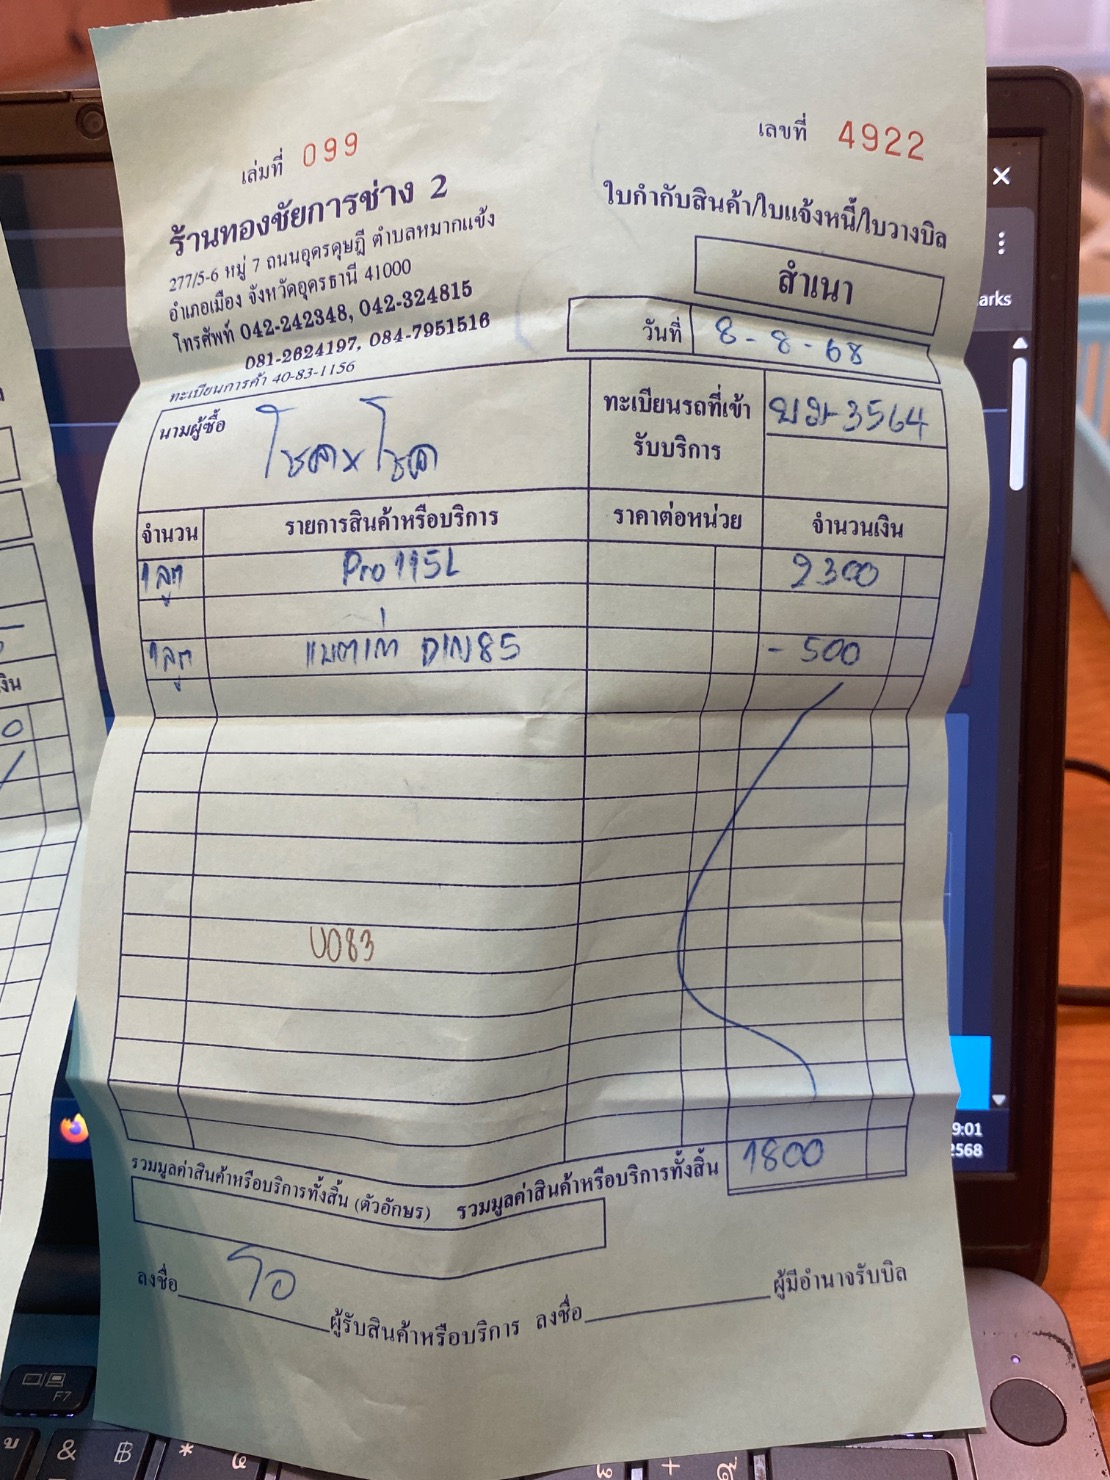 เล่มที่ 099
เลขที่ 4922
ร้านทองชัยการช่าง 2
277/5-6 หมู่ 7 ถนนอุดรดุษฎี ตำบลหมากแข้ง
อำเภอเมือง จังหวัดอุดรธานี 41000
โทรศัพท์ 042-242348, 042-324815
081-2624197, 084-7951516
ทะเบียนการค้า 40-83-1156
ใบกำกับสินค้า/ใบแจ้งหนี้/ใบวางบิล
สำเนา
วันที่ 8-8-68
นามผู้ซื้อ
ทะเบียนรถที่เข้า
รับบริการ
3564
จำนวน รายการสินค้าหรือบริการ ราคาต่อหน่วย จำนวนเงิน
1 ลูก Pro 115L 2300
1 ลูก แบตเก่า DIN85 - 500
U083
รวมมูลค่าสินค้าหรือบริการทั้งสิ้น (ตัวอักษร) รวมมูลค่าสินค้าหรือบริการทั้งสิ้น 1800
ลงชื่อ ผู้รับสินค้าหรือบริการ ลงชื่อ ผู้มีอำนาจรับบิล
arks
9:01
2568
F7
&
฿
*
+